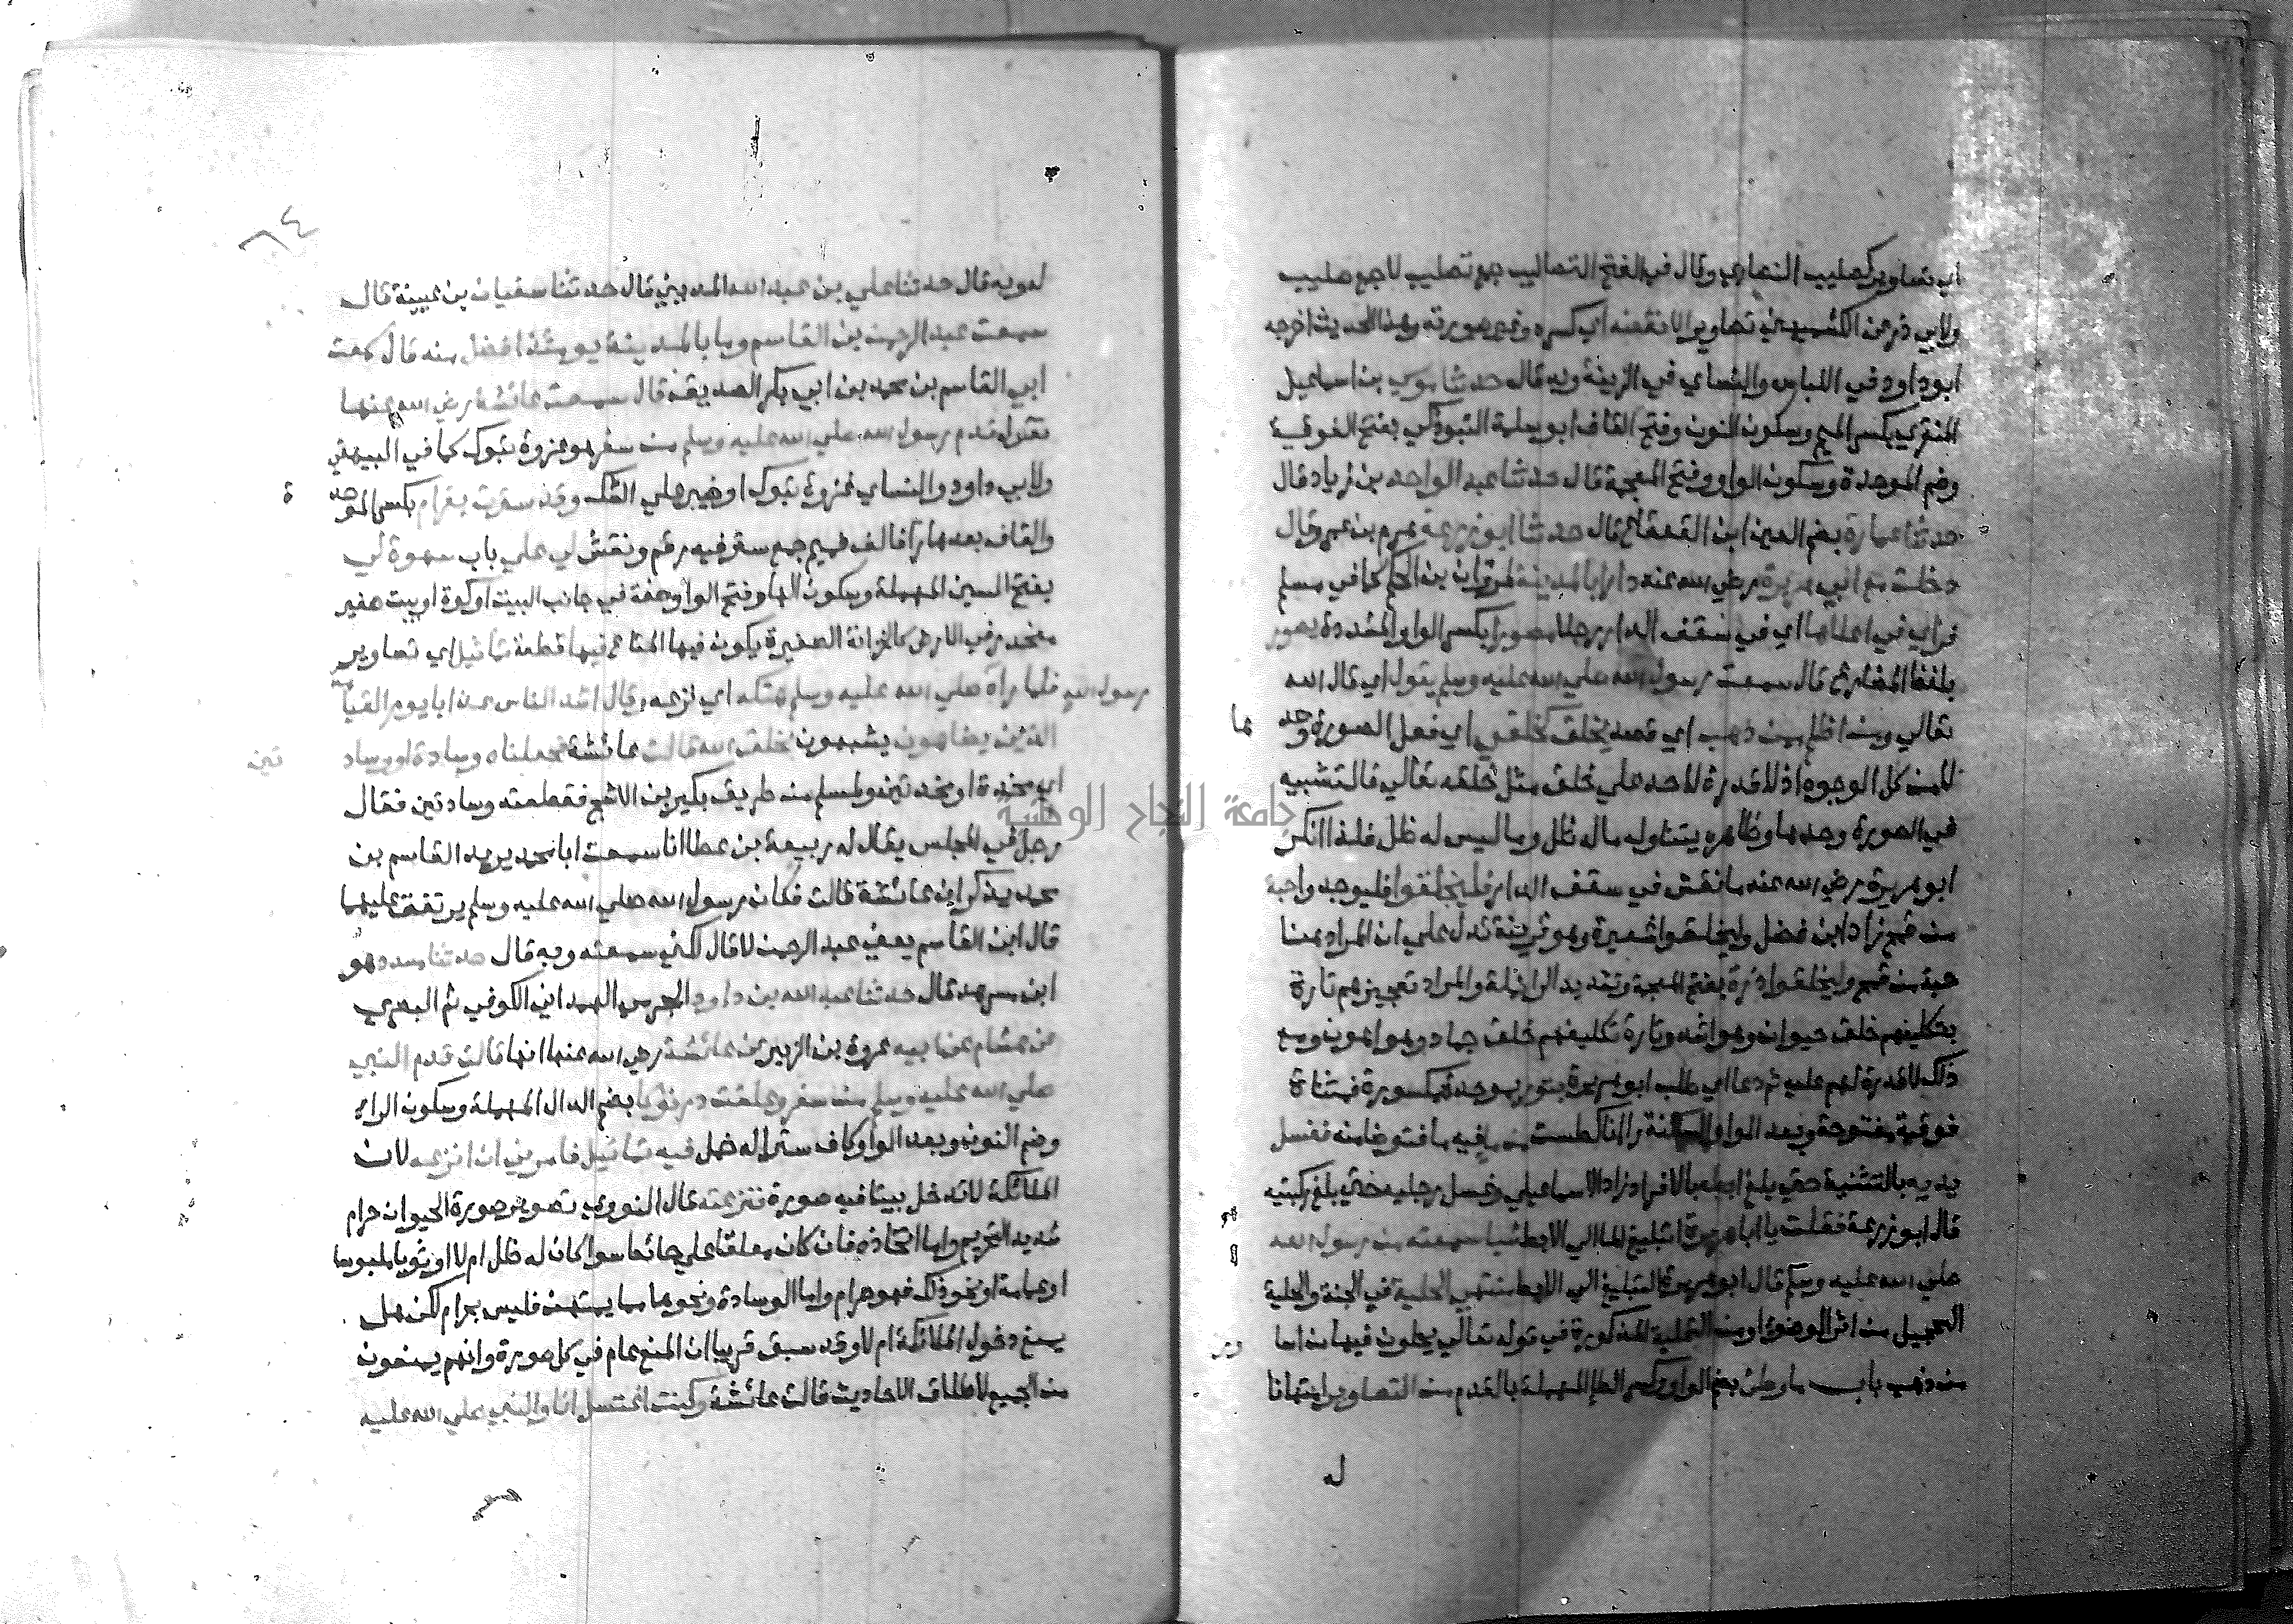 اي تصاوير كصليب النصاري وقال في الفتح التصاليب جمع تصليب لا جمع صليب
ولابي ذر عن الكشميهني تصاوير الا نقضه اي كسره وغير صورته وهذا الحديث اخرجه
ابو داود في اللباس والنساي في الزينة وبه قال حدثنا موسي بن اسماعيل
المنقري بكسر الميم وسكون النون وفتح القاف ابو سلمة التبوذكي بفتح الفوقية
وضم الموحدة وسكون الواو وفتح المعجمة قال حدثنا عبد الواحد بن زياد قال
حدثنا عمارة بضم العين ابن القعقاع قال حدثنا ابو زرعة هرم بن عمرو قال
دخلت مع ابي هريرة رضي الله عنه دارا بالمدينة لمروان بن الحكم كما في مسلم
فراي في اعلاها اي في سقف الدار رجلا مصورا بكسر الواو المشددة يصور
بلفظ المضارع قال سمعت رسول الله صلي الله عليه وسلم يقول اي قال الله
تعالي ومن اظلم ممن ذهب اي قصد يخلق كخلقي اي فعل الصورة وحدها
لا من كل الوجوه اذ لا قدرة لاحد علي خلق مثل خلقه تعالي فالتشبيه
في الصورة وحدها وظاهره يتناول ما له ظل وما ليس له ظل فلذا انكر
ابو هريرة رضي الله عنه ما نقش في سقف الدار فليخلقوا فليوجدوا حبة
من قمح زاد ابن فضل وليخلقوا شعيرة وهو قرينة تدل علي ان المراد هنا
حبة من قمح وليخلقوا ذرة بفتح المعجمة وتشديد الراء نملة والمراد تعجيزهم تارة
بتكليفهم خلق حيوان وهو اشد وتارة تكليفهم خلق جماد وهو اهون ومع
ذلك لا قدرة لهم عليه ثم دعا اي طلب ابو هريرة بتور بموحدة مكسورة فمثناة
فوقية مفتوحة وبعد الواو الساكنة را انا كطست من ما فيه ما فتوضا منه فغسل
يديه بالتثنية حتي بلغ ابطه بالافراد زاد الاسماعيلي وغسل رجليه حتي بلغ ركبتيه
قال ابو زرعة فقلت يا ابا هريرة اتبليغ الماء الي الابط شيا سمعته من رسول الله
صلي الله عليه وسلم قال ابو هريرة التبليغ الي الابط منتهي الحلية في الجنة والحلية
التحجيل من اثر الوضوء او من التحلية المذكورة في قوله تعالي يحلون فيها من اساور
من ذهب باب ما وطئ بضم الواو وكسر الطاء المهملة بالقدم من التصاوير امتهانا
له
٦٤
له وبه قال حدثنا علي بن عبد الله المديني قال حدثنا سفيان بن عيينة قال
سمعت عبد الرحمن بن القاسم وما بالمدينة يومئذ افضل منه قال سمعت
ابي القاسم بن محمد بن ابي بكر الصديق قال سمعت عائشة رضي الله عنها
تقول قدم رسول الله صلي الله عليه وسلم من سفر هو غزوة تبوك كما في البيهقي
ولابي داود والنساي غزوة تبوك او خيبر علي الشك وقد سترت بقرام بكسر الموحدة
والقاف بعدها را فالف فميم جمع ستر فيه رقم ونقش لي علي باب سهوة لي
بفتح السين المهملة وسكون الها وفتح الواو صفة في جانب البيت او كوة او بيت صغير
منحدر في الارض كالخزانة الصغيرة يكون فيها المتاع فيها قطعة تماثيل اي تصاوير
فلما رآه رسول الله صلي الله عليه وسلم هتكه اي نزعه وقال اشد الناس عذابا يوم القيامة
الذين يضاهون يشبهون بخلق الله قالت عائشة فجعلناه وسادة او وسادتين
اي مخدة او مخدتين ولمسلم من طريق بكير بن الاشج فقطعته وسادتين فقال
رجل في المجلس يقال له ربيعة بن عطا انا سمعت ابا محمد يريد القاسم بن
محمد يذكر ان عائشة قالت فكان رسول الله صلي الله عليه وسلم يرتفق عليهما
قال ابن القاسم يعني عبد الرحمن لا قال لكني سمعته وبه قال حدثنا مسدد هو
ابن مسرهد قال حدثنا عبد الله بن داود الهمداني الكوفي ثم البصري
عن هشام عن ابيه عروة بن الزبير عن عائشة رضي الله عنها انها قالت قدم النبي
صلي الله عليه وسلم من سفر وعلقت درنوكا بضم الدال المهملة وسكون الراء
وضم النون وبعد الواو كاف سترا له خمل فيه تماثيل فامرني ان انزعه لان
الملائكة لا تدخل بيتا فيه صورة فنزعته قال النووي تصوير صورة الحيوان حرام
شديد التحريم واما اتخاذه فان كان معلقا علي حائط سوا كان له ظل ام لا او ثوبا ملبوسا
او عمامة او نحو ذلك فهو حرام واما الوسادة ونحوها مما يمتهن فليس بحرام لكن هل
يمنع دخول الملائكة ام لا وقد سبق قريبا ان المنع عام في كل صورة وانهم يمنعون
من الجميع لاطلاق الاحاديث قالت عائشة وكنت اغتسل انا والنبي صلي الله عليه
جامعة النجاح الوطنية